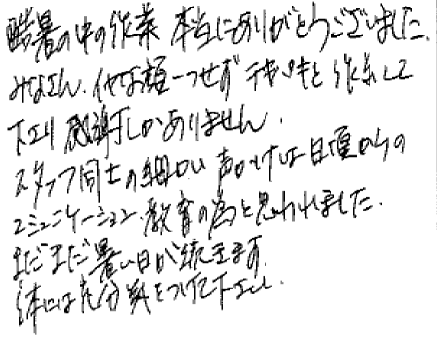 酷暑の中の作業 本当にありがとうございました。
みなさん、イヤな顔一つせず テキパキと作業して
下さり 感謝しかありません。
スタッフ同士の細かい声かけは日頃からの
コミュニケーション、教育の為と思われました。
まだまだ暑い日が続きます
体には充分気をつけて下さい。